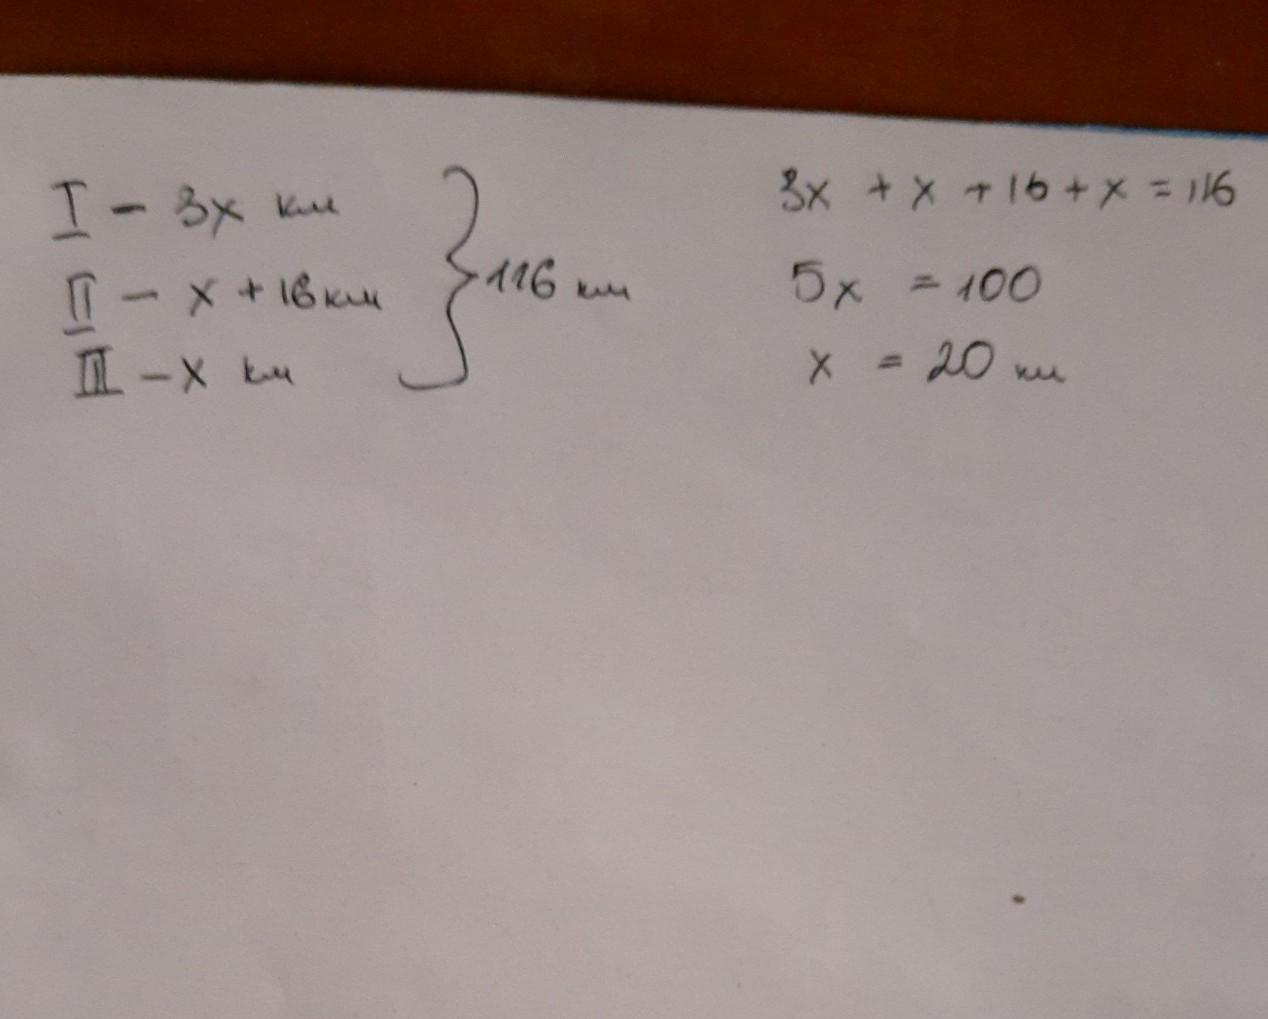 I - 3x км
II - x + 16 км
III - x км
} 116 км
3x + x + 16 + x = 116
5x = 100
x = 20 км